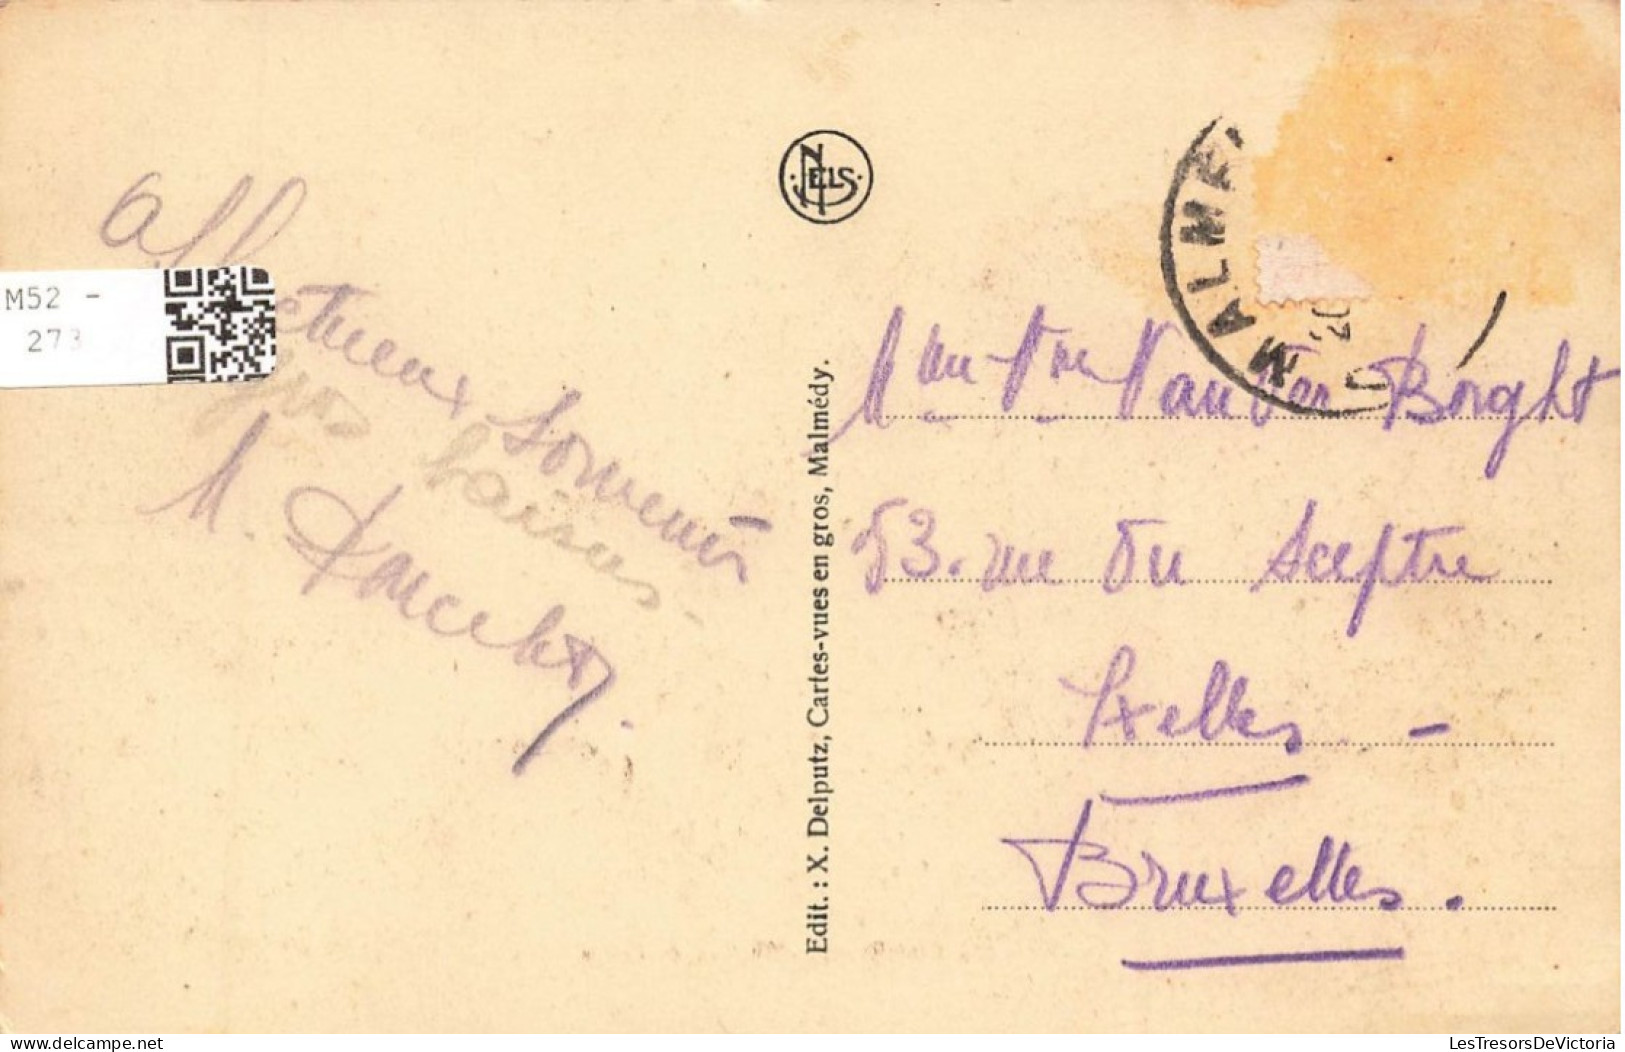 M52 -
273
Affectueux Souvenir
gros baisers
M.
NELS
Edit. : X. Delputz, Cartes-vues en gros, Malmédy.
MALMED
Vve Van den Borght
53. rue du Sceptre
Ixelles -
Bruxelles.
LesTresorsDeVictoria
www.delcampe.net